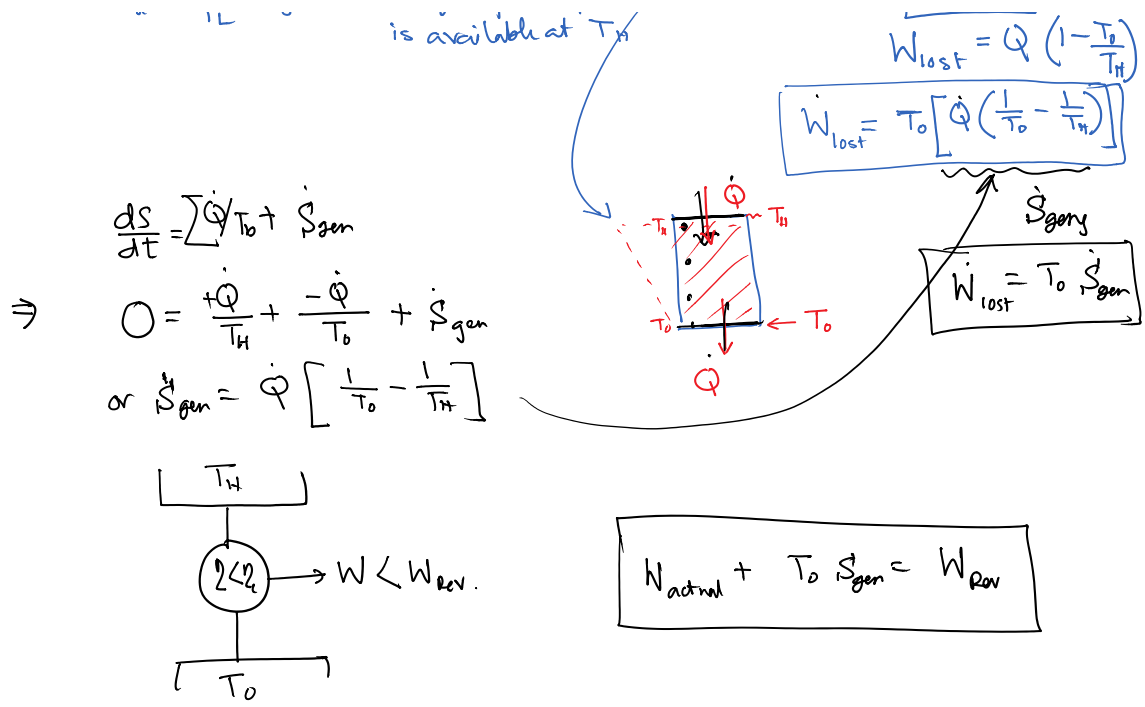 is available at T_H
Ẇ_lost = Q̇ (1 - T_0/T_H)
Ẇ_lost = T_0 [Q̇ (1/T_0 - 1/T_H)]
Ṡ_gen
Ẇ_lost = T_0 Ṡ_gen
dS/dt = Σ Q̇/T_b + Ṡ_gen
⇒ 0 = +Q̇/T_H + -Q̇/T_0 + Ṡ_gen
or Ṡ_gen = Q̇ [1/T_0 - 1/T_H]
Q̇
T_H
T_H
T_0
T_0
Q̇
T_H
→ W < W_Rev.
T_0
W_actual + T_0 Ṡ_gen = W_Rev